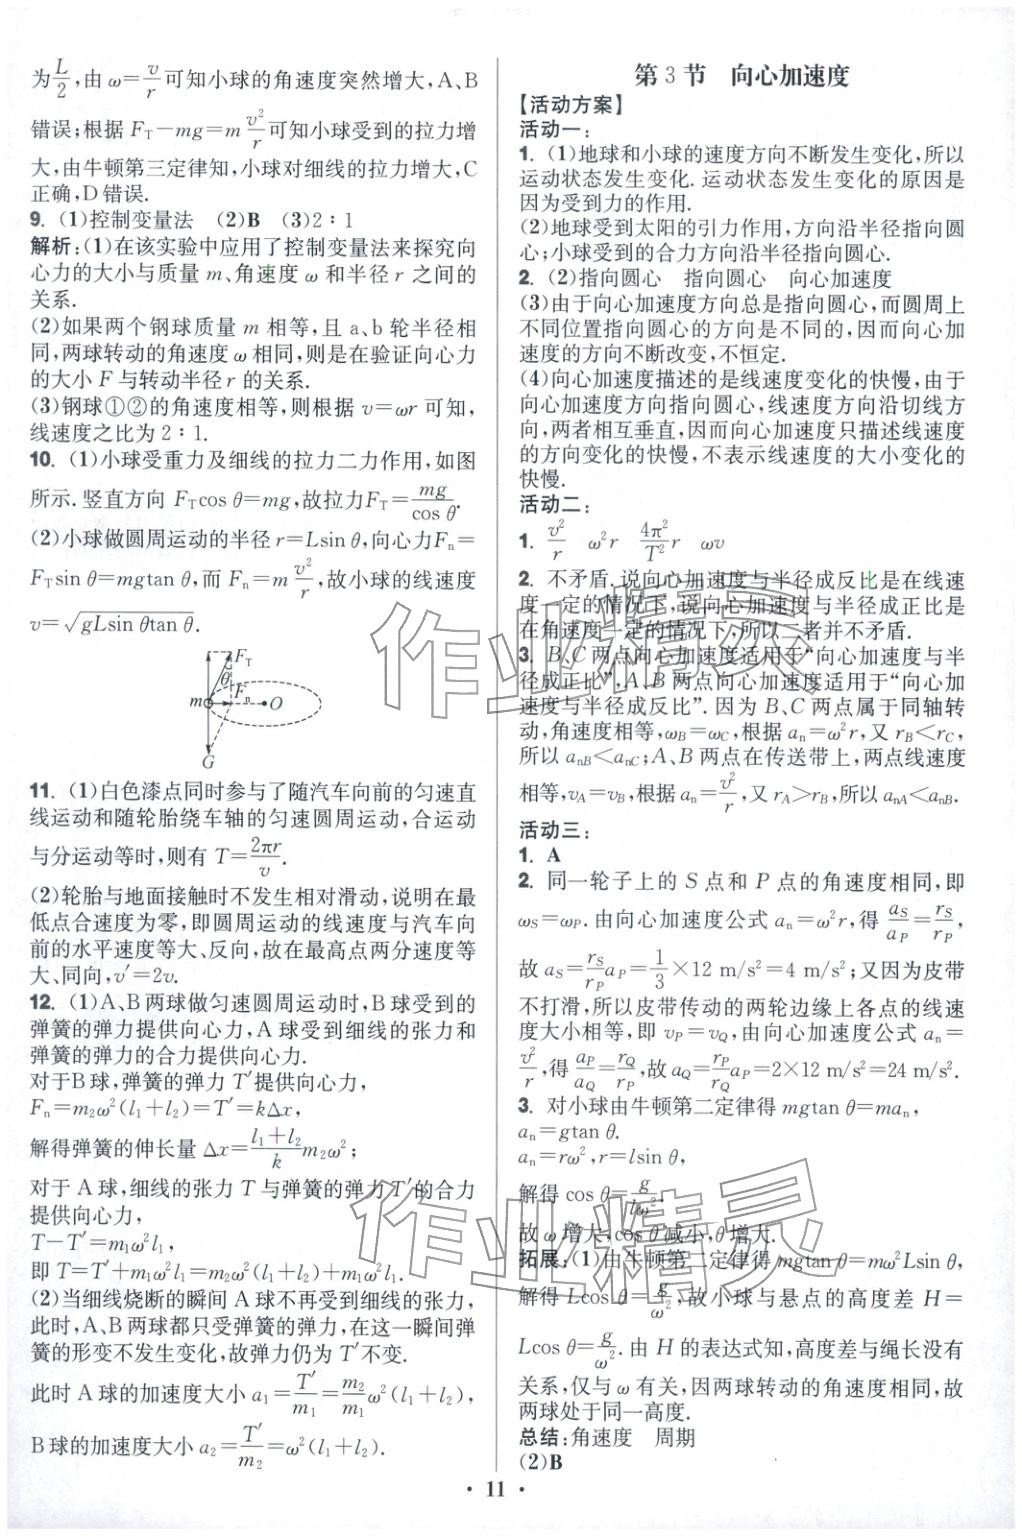 为L/2,由 ω=v/r可知小球的角速度突然增大,A、B
错误;根据 F_T－mg=m v²/r可知小球受到的拉力增
大,由牛顿第三定律知,小球对细线的拉力增大,C
正确,D 错误.
9. (1)控制变量法 (2)B (3)2∶1
解析:(1)在该实验中应用了控制变量法来探究向
心力的大小与质量 m、角速度 ω 和半径 r 之间的
关系.
(2)如果两个钢球质量 m 相等,且 a、b 轮半径相
同,两球转动的角速度 ω相同,则是在验证向心力
的大小 F 与转动半径 r 的关系.
(3)钢球①②的角速度相等,则根据 v=ωr 可知,
线速度之比为 2∶1.
10. (1)小球受重力及细线的拉力二力作用,如图
所示.竖直方向 F_Tcos θ=mg,故拉力F_T=mg/cos θ.
(2)小球做圆周运动的半径 r=Lsin θ,向心力F_n=
F_Tsin θ=mgtan θ,而 F_n=m v²/r,故小球的线速度
v=√(gLsin θtan θ).
F_T
θ
m F_n O
G
11. (1)白色漆点同时参与了随汽车向前的匀速直
线运动和随轮胎绕车轴的匀速圆周运动,合运动
与分运动等时,则有 T=2πr/v.
(2)轮胎与地面接触时不发生相对滑动,说明在最
低点合速度为零,即圆周运动的线速度与汽车向
前的水平速度等大、反向,故在最高点两分速度等
大、同向,v′=2v.
12. (1)A、B两球做匀速圆周运动时,B球受到的
弹簧的弹力提供向心力,A球受到细线的张力和
弹簧的弹力的合力提供向心力.
对于B球,弹簧的弹力 T′提供向心力,
F_n=m₂ω²(l₁+l₂)=T′=kΔx,
解得弹簧的伸长量 Δx=(l₁+l₂)/k m₂ω²;
对于 A 球,细线的张力 T 与弹簧的弹力 T′的合力
提供向心力,
T－T′=m₁ω²l₁,
即 T=T′+m₁ω²l₁=m₂ω²(l₁+l₂)+m₁ω²l₁.
(2)当细线烧断的瞬间 A球不再受到细线的张力,
此时,A、B两球都只受弹簧的弹力,在这一瞬间弹
簧的形变不发生变化,故弹力仍为 T′不变.
此时 A球的加速度大小 a₁=T′/m₁=m₂/m₁ω²(l₁+l₂),
B 球的加速度大小 a₂=T′/m₂=ω²(l₁+l₂).
第 3 节 向心加速度
【活动方案】
活动一:
1. (1)地球和小球的速度方向不断发生变化,所以
运动状态发生变化.运动状态发生变化的原因是
因为受到力的作用.
(2)地球受到太阳的引力作用,方向沿半径指向圆
心;小球受到的合力方向沿半径指向圆心.
2. (2)指向圆心 指向圆心 向心加速度
(3)由于向心加速度方向总是指向圆心,而圆周上
不同位置指向圆心的方向是不同的,因而向心加
速度的方向不断改变,不恒定.
(4)向心加速度描述的是线速度变化的快慢,由于
向心加速度方向指向圆心,线速度方向沿切线方
向,两者相互垂直,因而向心加速度只描述线速度
的方向变化的快慢,不表示线速度的大小变化的
快慢.
活动二:
1. v²/r ω²r 4π²/T² r ωv
2. 不矛盾.说向心加速度与半径成反比是在线速
度一定的情况下,说向心加速度与半径成正比是
在角速度一定的情况下,所以二者并不矛盾.
3. B、C 两点向心加速度适用于“向心加速度与半
径成正比”,A、B 两点向心加速度适用于“向心加
速度与半径成反比”.因为 B、C 两点属于同轴转
动,角速度相等,ω_B=ω_C,根据 a_n=ω²r,又 r_B<r_C,
所以 a_nB<a_nC;A、B 两点在传送带上,两点线速度
相等,v_A=v_B,根据 a_n=v²/r,又 r_A>r_B,所以 a_nA<a_nB.
活动三:
1. A
2. 同一轮子上的 S 点和 P 点的角速度相同,即
ω_S=ω_P.由向心加速度公式 a_n=ω²r,得 a_S/a_P=r_S/r_P,
故 a_S=r_S/r_P a_P=1/3×12 m/s²=4 m/s²;又因为皮带
不打滑,所以皮带传动的两轮边缘上各点的线速
度大小相等,即 v_P=v_Q,由向心加速度公式 a_n=
v²/r,得a_P/a_Q=r_Q/r_P,故 a_Q=r_P/r_Q a_P=2×12 m/s²=24 m/s².
3. 对小球由牛顿第二定律得 mgtan θ=ma_n,
a_n=gtan θ.
a_n=rω²,r=lsin θ,
解得 cos θ=g/lω².
故 ω增大,cos θ减小,θ增大.
拓展:(1)由牛顿第二定律得 mgtan θ=mω²Lsin θ,
解得 Lcos θ=g/ω²,故小球与悬点的高度差 H=
Lcos θ=g/ω².由 H 的表达式知,高度差与绳长没有
关系,仅与 ω 有关,因两球转动的角速度相同,故
两球处于同一高度.
总结:角速度 周期
(2)B
• 11 •
作业精灵
作业精灵